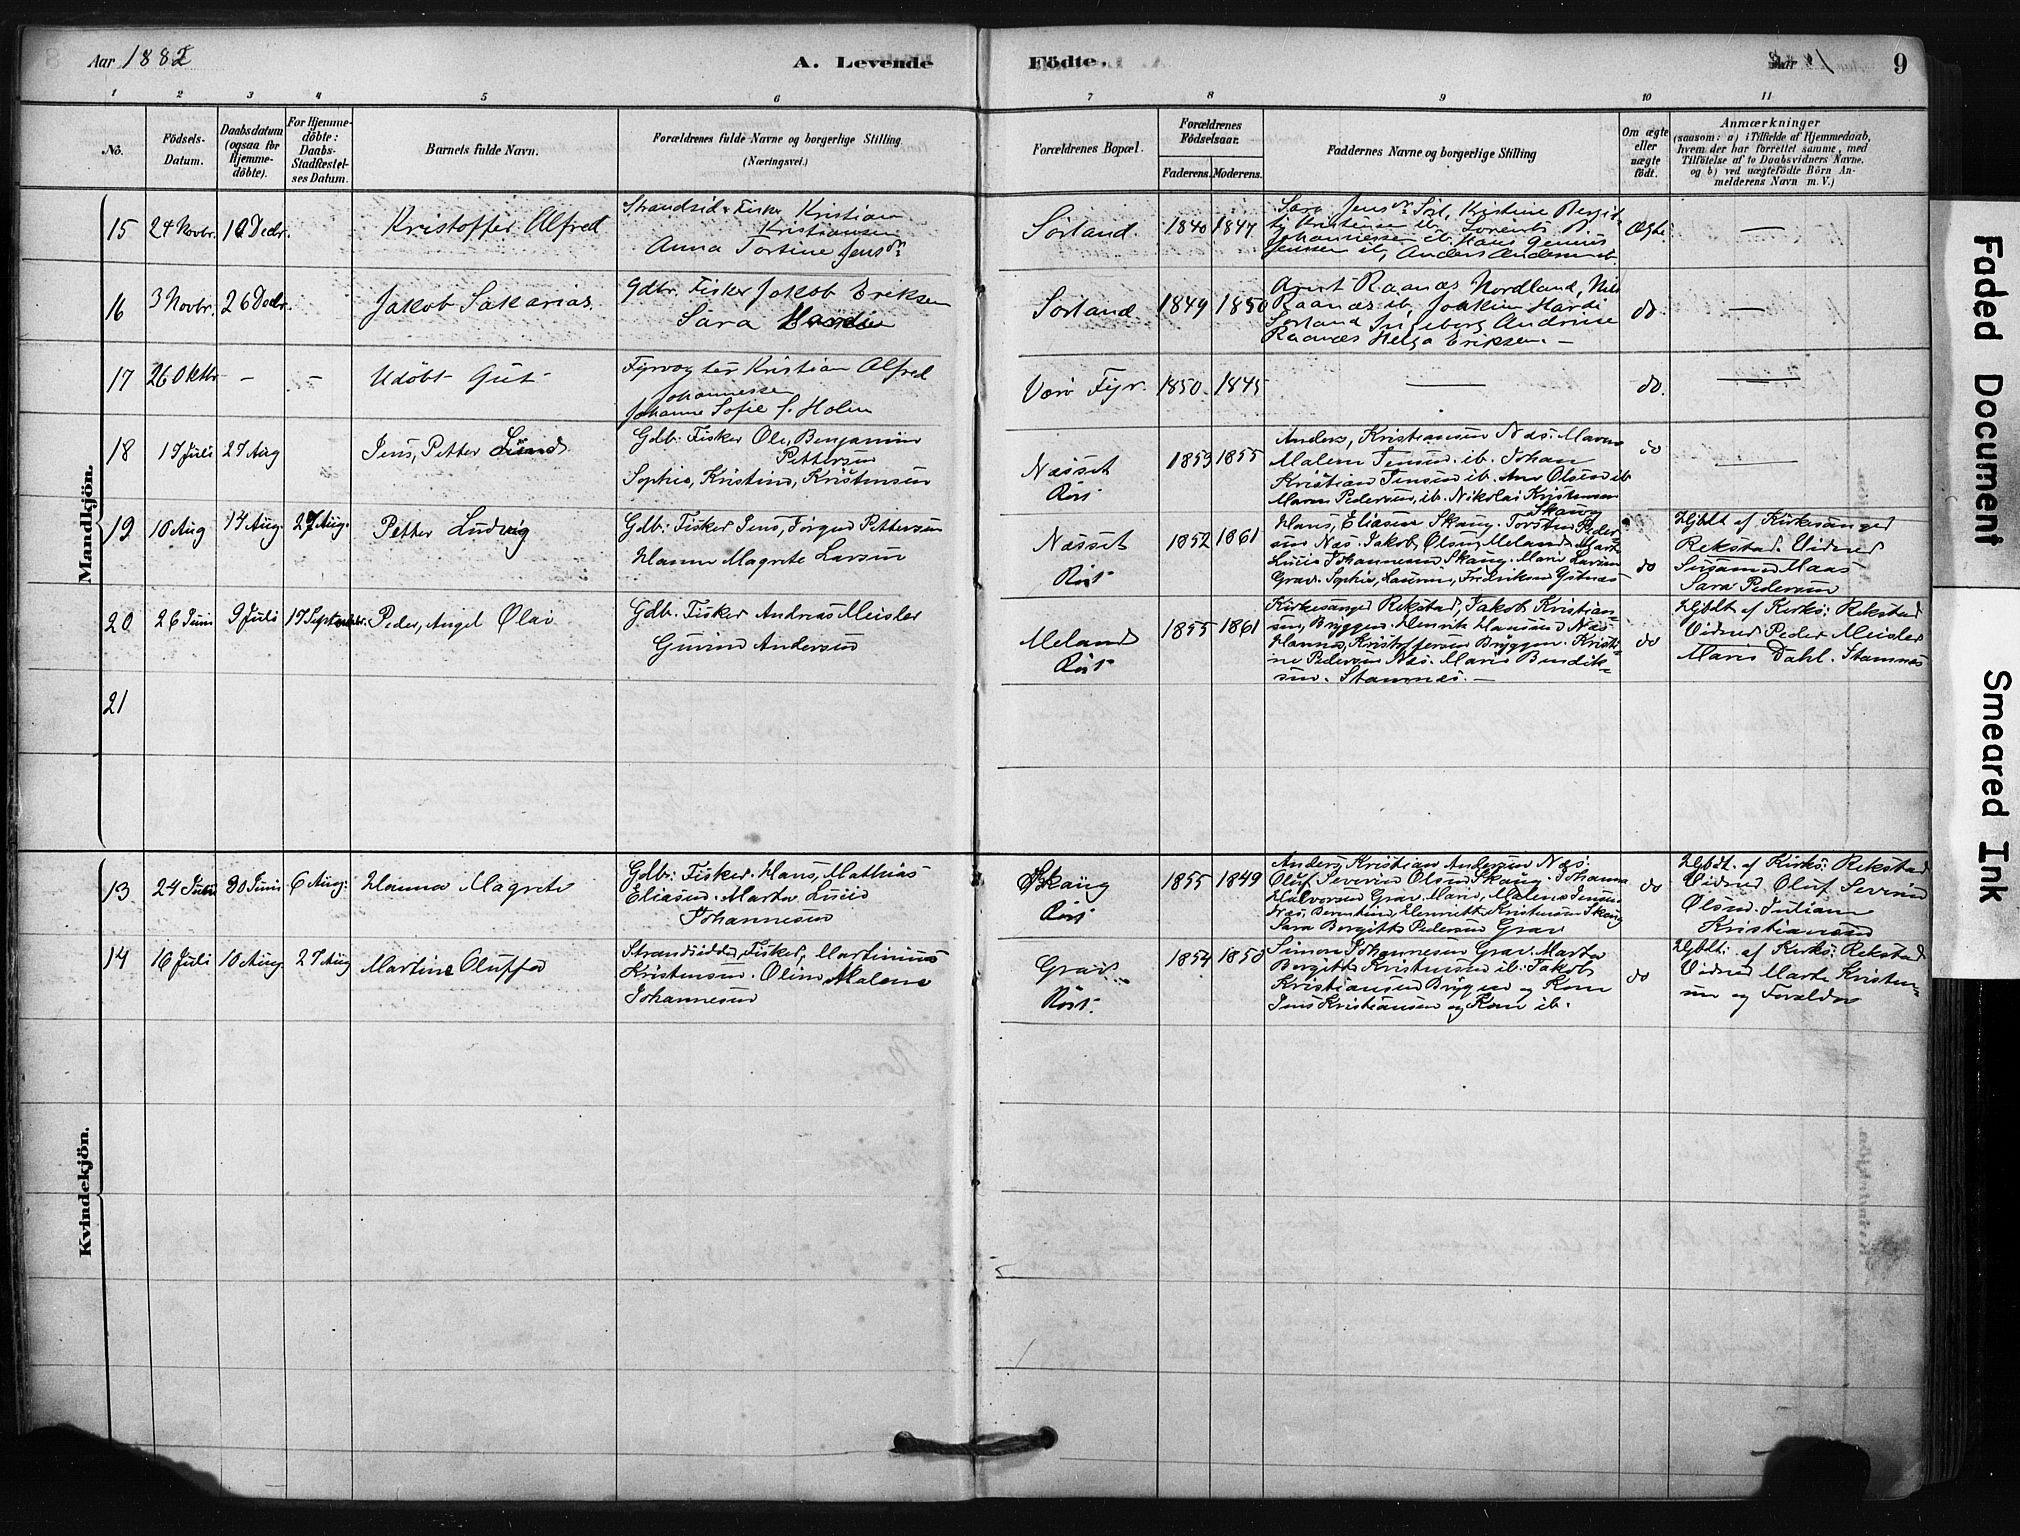 Aar 1882
A. Levende
Födte.
9
1 2 3 4 5 6 7 8 9 10 11
No.
Födsels-
Datum.
Daabsdatum
(ogsaa for
Hjemme-
döbte).
For Hjemme-
döbte:
Daabs-
Stadfæstel-
ses Datum.
Barnets fulde Navn.
Forældrenes fulde Navne og borgerlige Stilling
(Næringsvei.)
Forældrenes Bopæl.
Forældrenes
Födselsaar.
Faderens.
Moderens.
Faddernes Navne og borgerlige Stilling
Om ægte
eller
uægte
födt.
Anmærkninger
(saasom: a) i Tilfælde af Hjemmedaab,
hvem der har forrettet samme, med
Tilföielse af to Daabsvidners Navne,
og b) ved uægtefödte Börn An-
melderens Navn m. V.)
Mandkjön.
15 24 Novbr. 12 Decbr. Kristoffer Alfred
Strandsid. Fisker Kristian
Kristiansen
Anna Tortine Jensdr
Sörland. 1840 1847
Johannessen ib. Hans
Jensen ib, Anders Andersen ib.
Ægte —
16 3 Novbr. 26 Decbr. Jakob Sakarias.
Gdbr. Fisker Jakob Eriksen
Sara
Sörland. 1849 1850
Arnt Raanæs Nordland, Nils
Raanæs ib, Joakim Hardi
Sörland Ingeborg Andrine
Raanæs Helga Eriksen. —
do. —
17 26 Oktbr — — Udöbt Gut
Fyrvogter Kristian Alfred
Johannessen
Johanne Sofie f. Holm
Værö Fyr. 1850 1845 — do. —
18 17 Juli 27 Aug Jens, Petter
Gdbr. Fisker Ole, Benjamin
Pettersen
Sophie, Kristine, Kristensen
Næsset
Röst
1853 1855
Anders, Kristiansen Næs. Maren
Malene Jensen ib. Johan
Kristian Jensen ib. Ane Olsen ib
Maren Pedersen, ib. Nikolai Kristensen
Skaug
do —
19 10 Aug 14 Aug. 27 Aug. Petter Ludvig
Gdb. Fisker Jens, Jörgen Pettersen
Hanna Magrete Larsen
Næsset
Röst
1852 1861
Hans, Eliasen Skaug. Torsten Peder-
sen Næs. Jakob, Olsen, Meland. Marte
Lucie Johannesen Skaug. Marie Larsen
Grav. Sophie, Fredriksen Ystnæs
do
Hjdbt af Kirkesanger
Rekstad. Vidner
Susanna Maas
Sara Pedersen
20 26 Juni 9 Juli 17 Septembr. Peder, Angel Olai
Gdb. Fisker Andreas Meisler
Andersen
Meland
Röst
1855 1861
Kirkesanger Rekstad, Jakob Kristian-
sen, Bryggen. Henrik Hansen Næs
Hanna, Kristoffersen Bryggen. Kristi-
ne Pedersen Næs. Marie Bendik-
sen. Stamnæs. —
do
Hjdbt af Kirks: Rekstad
Vidner Peder Meisler
Marie Dahl. Stamnæs
21
Kvindekjön.
13 24 Juni 30 Juni 6 Aug: Hanna Magrete
Gdb: Fisker. Hans, Mathias
Eliasen. Marta Lucie
Johannesen
Skaug
Röst
1855 1849
Anders, Kristian Andersen Næs:
Oluf Severin Olsen Skaug. Johanna
Halvorsen Grav. Marie, Malene Jensen
Næs, Berntine, Henrette Kristensen Skaug
Sara Borgitte Pedersen Grav
do
Hjdbt. af Kirks: Rekstad
Vidner Oluf Severin
Olsen. Juliane
Kristiansen
14 16 Juli 10 Aug. 27 Aug Martine Oluffa
Strandsidder, Fisker, Martinius
Kristensen. Oline Malene
Johannesen
Grav.
Röst.
1854 1850
Simon Johannesen Grav. Marta
Borgitte Kristensen ib. Jakob
Kristiansen Bryggen og Kone
Jens Kristiansen og Kone ib.
do
Hjdbt: af Kirks: Rekstad
Vidner Marte Kristen-
sen og Forældre
Faded Document
Smeared Ink